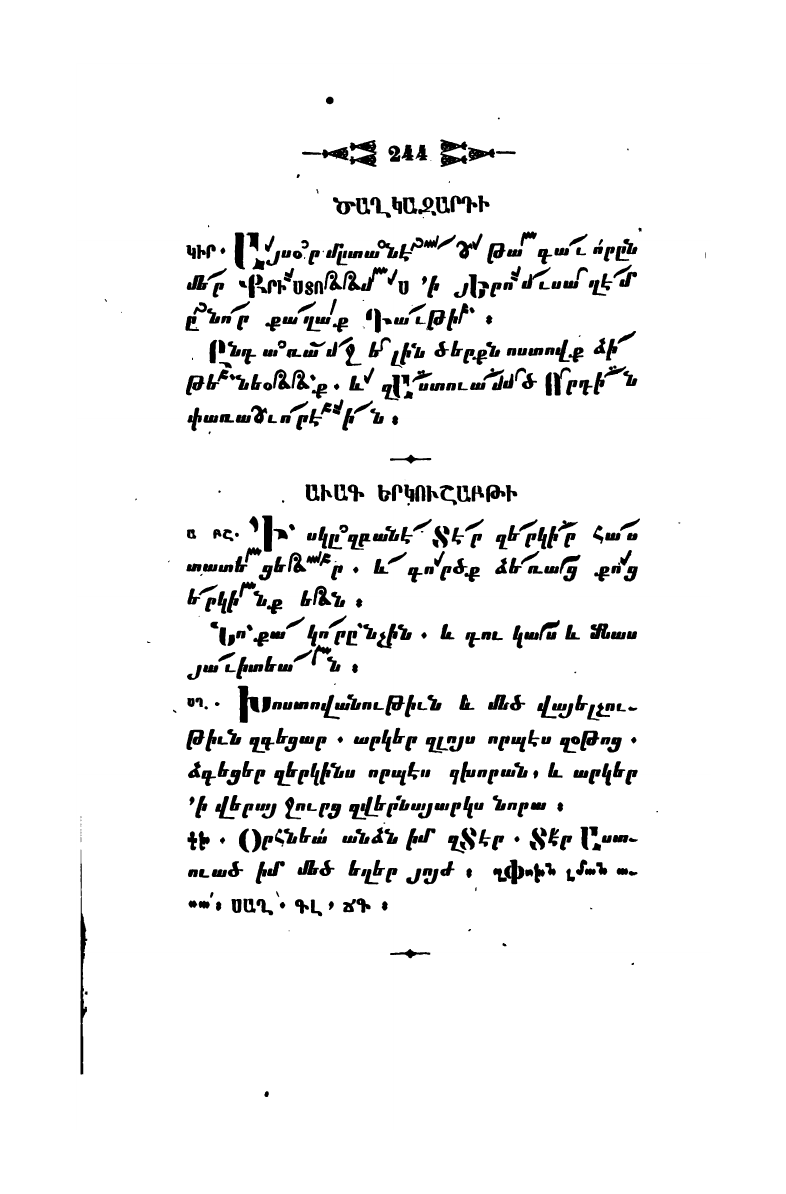 244
ԾԱՂԿԱԶԱՐԴԻ
ԿԻՐ. Այսօր մըտանէ թագաւորըն
մեր Քրիստոս ՛ի յԵրուսաղէմ
ընոր քաղաք Դաւթի :
Ընդ առաջ ելին ծերքն ոստովք ձի
թենեօք. և զԱստուածած Որդին
փառաւորէին :
ԱՒԱԳ ԵՐԿՈՒՇԱԲԹԻ
Ա ԲՇ. Ի սկըզբանէ Տէր զերկիր հաս
տատեցեր. և գործք ձեռաց քոց
երկինք են :
Նոքա կորընչին. և դու կաս և մնաս
յաւիտեան :
ՍՂ. Խոստովանութիւն և մեծ վայելչու-
թիւն զգեցար. արկեր զլոյս որպէս զօթոց.
ձգեցեր զերկինս որպէս զխորան, և արկեր
՛ի վերայ ջուրց զվերնայարկս նորա :
Օրհնեա անձն իմ զՏէր. Տէր Աստ-
ուած իմ մեծ եղեր յոյժ : զՓոխն լման ա-
սա : ՍԱՂ. ԳԼ, ՃԳ :